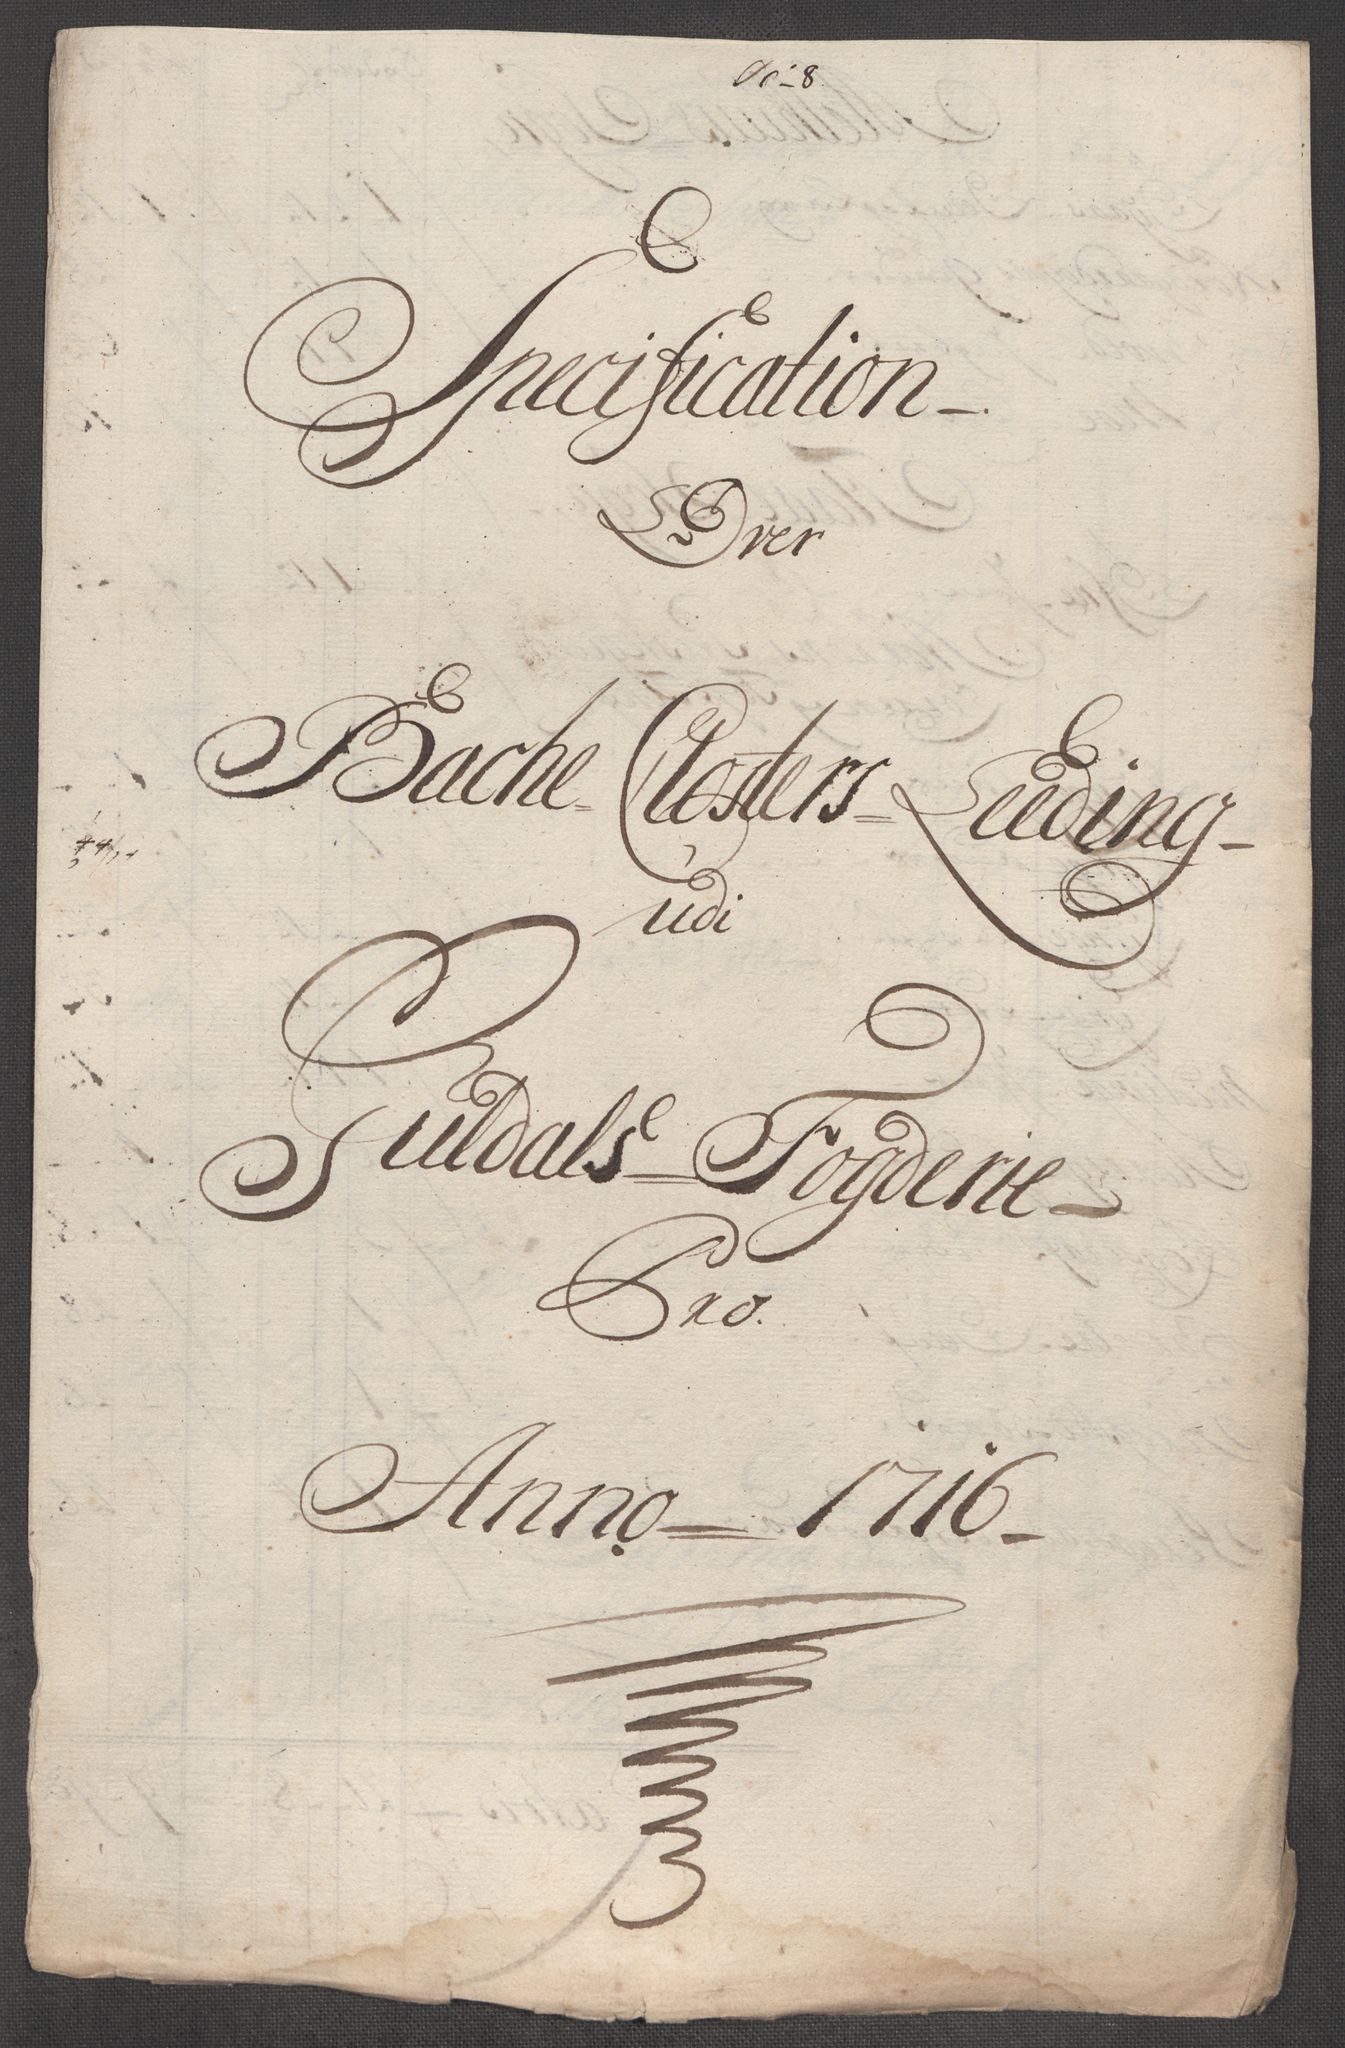 Specification
Over
Bache Closters Leding
udi
Guldals Fogderie
Pro.
Anno 1716